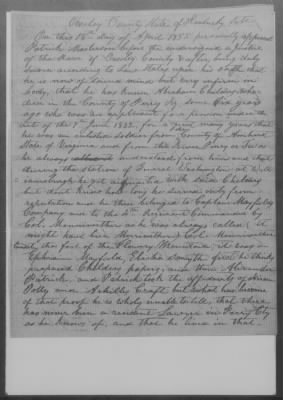 Owsley County State of Kentucky Sct.
On this 15th day of April 1855 personally appeared
Patrick before the undersigned a Justice
of the Peace of Owsley County & after being duly
sworn according to Law States upon his oath that
he is now of Sound mind but very infirm in
body, that he has known Abraham Childers who
died in the County of Perry Ky some five years
ago who was an applicant for a pension under the
act of the 7th June 1832, for a great many years that
he was an enlisted soldier from County of Amherst
State of Virginia and from this River Perry or
he always understood from him and that
during the Station of General Washington at
he got acquainted with said Childers
but dont know how long he served only from
reputation and he then belonged to Captain Mayfields
Company and to the 4th Regiment Commanded by
Col. as he was always called it
might have been Col.
the foot of the Mountains, it was in
Ephraim Mayfield, Elisha first he thinks
prepared Childers papers, and then Alexander
Patrick, and Patrick took the affidavits of
Polly and Achilles Craft but what has become
of that proof he is wholly unable to tell, that there
has never been a resident Lawyer in Perry Cty
as he knows of, and that he lived in that